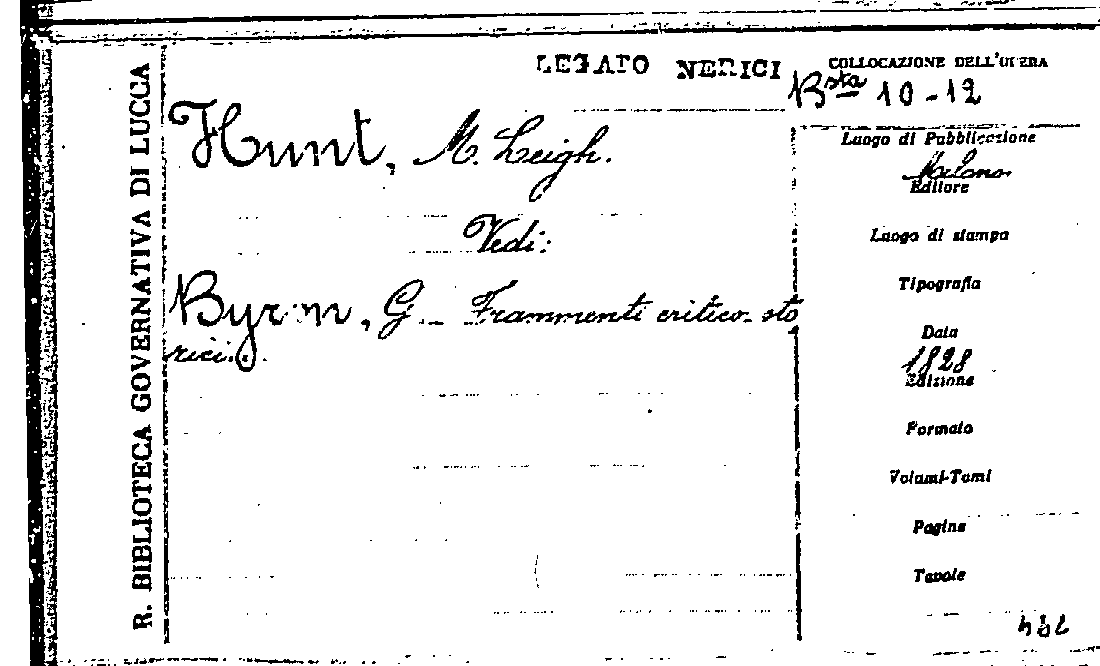 R. BIBLIOTECA GOVERNATIVA DI LUCCA
LEGATO NERICI
COLLOCAZIONE DELL'OPERA
Bsta 10-12
Hunt, M. Leigh.
Vedi:
Byron, G. - Frammenti critico-sto
rici.
Luogo di Pubblicazione
Milano
Editore
Luogo di stampa
Tipografia
Data
1828
Edizione
Formato
Volumi-Tomi
Pagine
Tavole